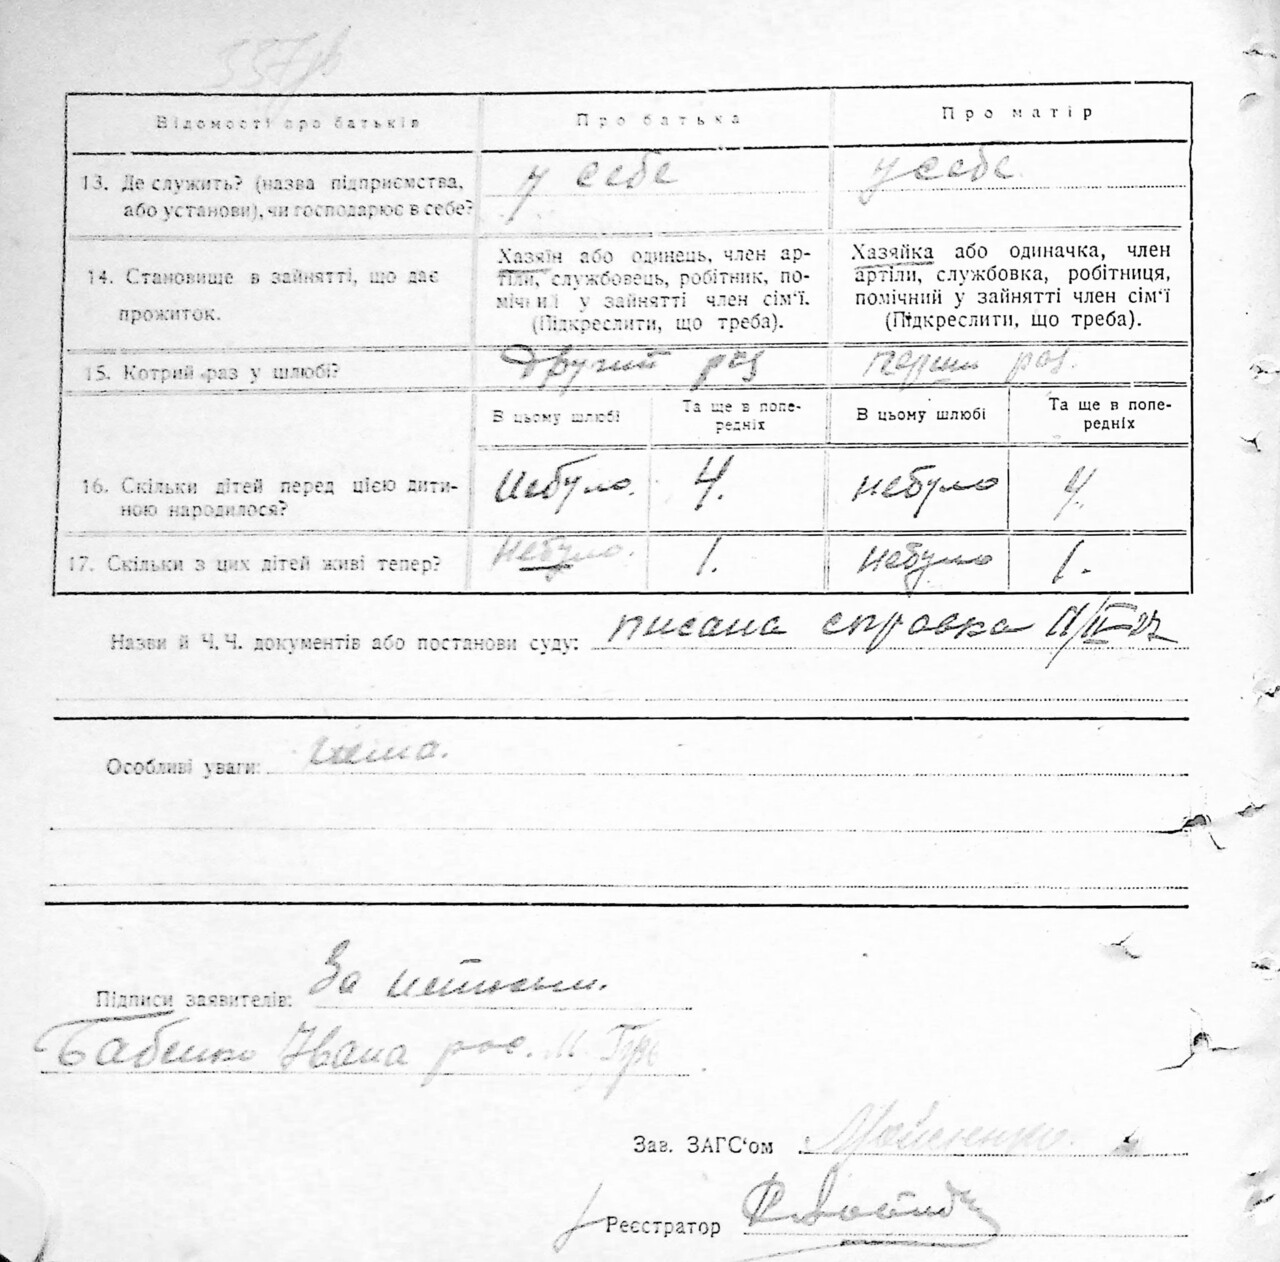 337
Відомості про батьків
Про батька
Про матір
13. Де служить? (назва підприємства,
або установи), чи господарює в себе?
у себе
у себе
14. Становище в зайнятті, що дає
прожиток.
Хазяїн або одинець, член ар-
тіли, службовець, робітник, по-
мічний у зайнятті член сім'ї.
(Підкреслити, що треба).
Хазяйка або одиначка, член
артіли, службовка, робітниця,
помічний у зайнятті член сім'ї
(Підкреслити, що треба).
15. Котрий раз у шлюбі?
другий раз
перший раз.
В цьому шлюбі
Та ще в попе-
редніх
В цьому шлюбі
Та ще в попе-
редніх
16. Скільки дітей перед цією дити-
ною народилося?
Небуло.
4.
небуло
4.
17. Скільки з цих дітей живі тепер?
Небуло.
1.
небуло
1.
Назви й Ч.Ч. документів або постанови суду: писана справка
Особливі уваги: Нема.
Підписи заявителів: За
Бабенко Івана рос.
Зав. ЗАГС'ом
Реєстратор